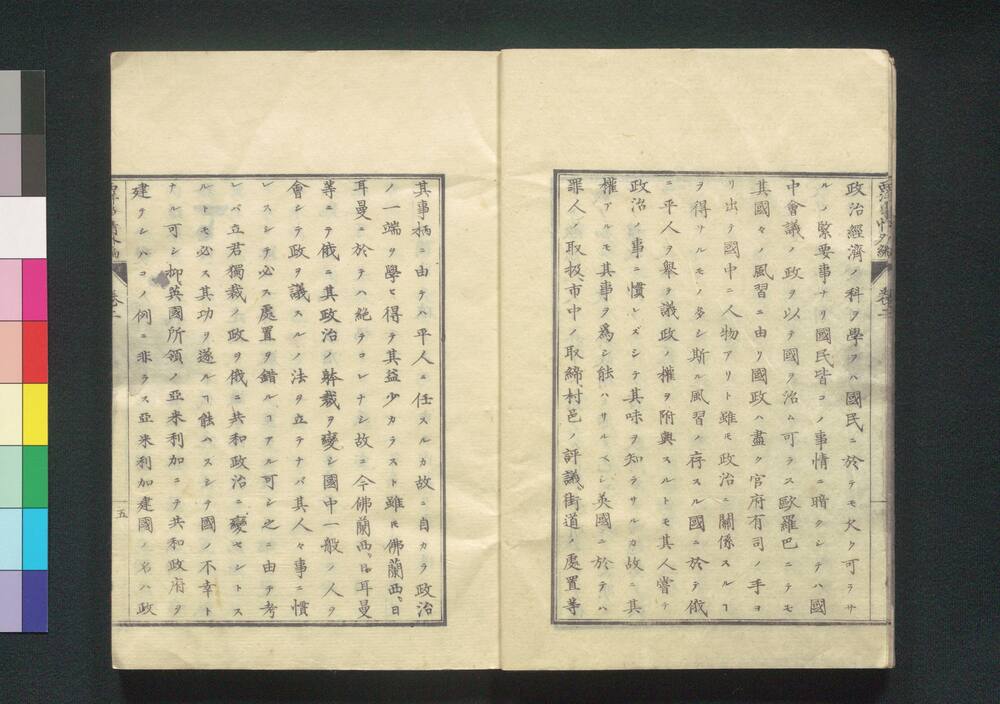 西洋事情外編 卷之二
政治經濟ノ科ヲ學フハ國民ニ於テモ欠ク可ラサ
ルノ緊要事ナリ國民皆コノ事情ニ暗クシテハ國
中會議ノ政ヲ以テ國ヲ治ム可ラス歐羅巴ニテモ
其國々ノ風習ニ由リ國政ハ盡ク官府有司ノ手ヨ
リ出テ國中ニ人物アリト雖モ政治ニ關係スルヿ
ヲ得サルモノ多シ斯ル風習ノ存スル國ニ於テ俄
ニ平人ヲ舉ケ議政ノ權ヲ附與スルトモ其人嘗テ
政治ノ事ニ慣レズシテ其味ヲ知ラサルカ故ニ其
權アルモ其事ヲ爲シ能ハサルベシ英國ニ於テハ
罪人ノ取扱市中ノ取締村邑ノ評議街道ノ處置等
其事柄ニ由テハ平人ニ任スルカ故ニ自カラ政治
ノ一端ヲ學ヒ得テ其益少カラスト雖𪜈佛蘭西、日
耳曼ニ於テハ絶テコレナシ故ニ今佛蘭西、日耳曼
等ニテ俄ニ其政治ノ躰裁ヲ變シ國中一般ノ人ヲ
會シテ政ヲ議スルノ法ヲ立テナバ其人々事ニ慣
レスシテ必ス處置ヲ錯ルヿアル可シ之ニ由テ考
レバ立君獨裁ノ政ヲ俄ニ共和政治ニ變セントス
ルトモ必ス其功ヲ遂ルヿ能ハスシテ國ノ不幸ト
ナル可シ抑英國所領ノ亞米利加ニテ共和政府ヲ
建タシハコノ例ニ非ラス亞米利加建國ノ名ハ政
卷之二
五